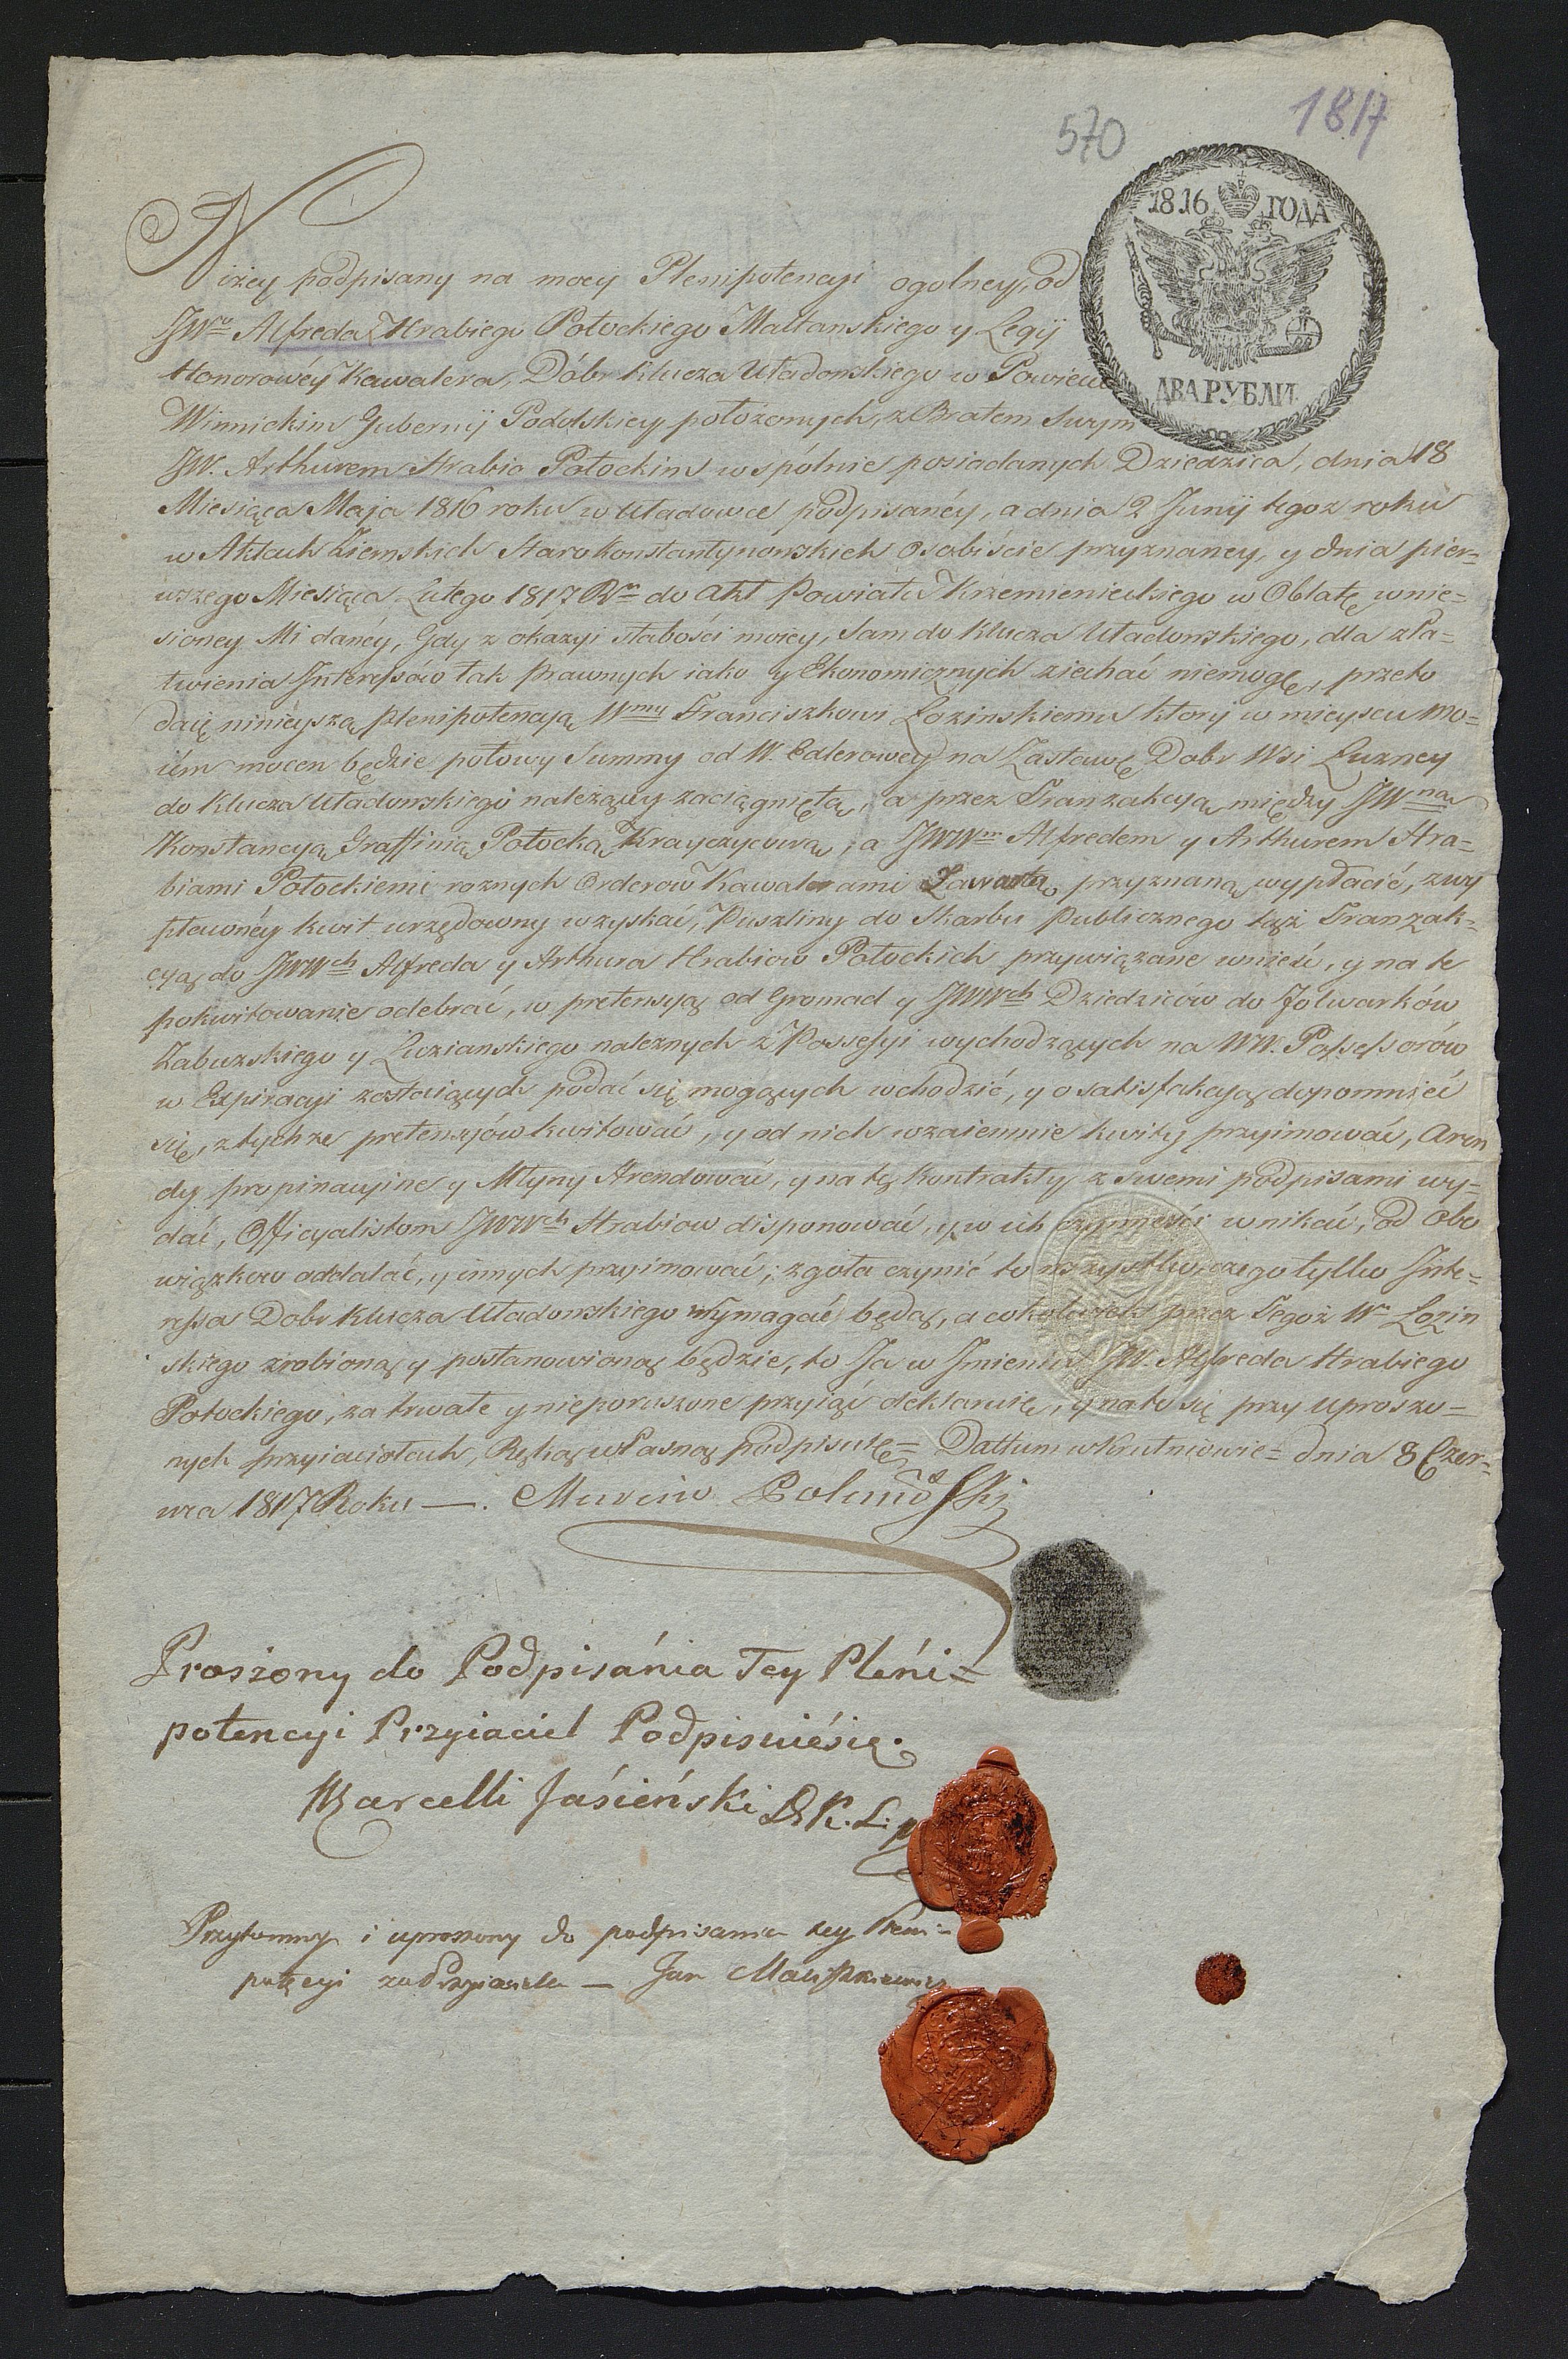 570
1817
1816 ГОДА
ДВА РУБЛИ.
Niżey podpisany na mocy Plenipotencyi ogolney, od
JWo Alfreda Hrabiego Potockiego Maltanskiego y Legij
Honorowéy Kawalera, Dóbr Klucza Uładowskiego w Powiecie
Winnickim Gubernij Podolskiey położonych, z Bratem Swym
JW. Arthurem Hrabią Potockim wspólnie posiadanych Dziedzica, dnia 18
Miesiąca Maja 1816 roku w Uładowce podpisanéy, a dnia 2 Junij tegoż roku
w Aktach Ziemskich Starokonstantynowskich osobiście przyznaney, y dnia pier=
wszego Miesiąca Lutego 1817 Ru do Akt Powiatu Krzemienieckiego w Oblatę wnie=
sioney Mi danéy, Gdy z okazyi słabości moiey, Sam do Klucza Uładowskiego, dla zła=
twienia Interessów tak Prawnych iako y Ekonomicznych ziechać niemogę, przeto
daię ninieyszą plenipotencyą Wmu Franciszkowi Łozinskiemu ktory w mieyscu mo=
iém mocen będzie połowy Summy od W. Ederowey na Zastawę Dobr Wsi Luzney
do Klucza Uładowskiego należącey zaciągniętą, a przez Tranzakcyą między JWną
Konstancyą Graffinią Potocką Krayczycową, a JWWm Alfredem y Arthurem Hra=
biami Potockiemi roznych Orderow Kawalerami Zawartą, przyznaną wypłacić, z wy
płaconéy kwit urzędowny uzyskać, Puszliny do Skarbu Publicznego tąż Tranzak=
cyą do JWWch Alfreda y Arthura Hrabiow Potockich przywiązane wnieść, y na te
pokwitowanie odebrać, w pretensyą od Gromad y JWWch Dziedziców do Folwarków
Zabuzskiego y Luzianskiego należnych z Possessyi wychodzących na WW. Possessorów
w Expiracyi zostaiących podać się mogących wchodzić, y o satisfakcyą dopomnieć
się, z tychże pretensyów kwitować, y od nich wzaiemnie kwity przyimować, Aren
dy propinacyine y Młyny Arendować, y na tę kontrakty z swemi podpisami wy=
dać, Officyalistom JWWch Hrabiow disponować, y w ich czynności wnikać, od obo
wiązkow oddalać, y innych przyimować; zgoła czynić to wszystko, czego tylko Inte=
ressa Dobr Klucza Uładowskiego wymagać będą, a cokolwiek przez Tegoż Wo Łozin
skiego zrobioną y postanowioną będzie, to Ja w Imieniu JW. Alfreda Hrabiego
Potockiego, za trwałe y nieporuszone przyiąć deklaruię, y na to się przy uproszo=
nych przyiaciołach, Ręką własną podpisuię= Dattum w Krutniowie= dnia 8 Czer=
wca 1817 Roku —.
Proszony do Podpisánia Tey Pléni=
potencyi Przyiaciel Podpisuiésię.
Marcelli Jásiéński D. K. L. p
Przytomny i uproszony do podpisania tey Pleni=
potęcyi za Przyiaciela — Jan